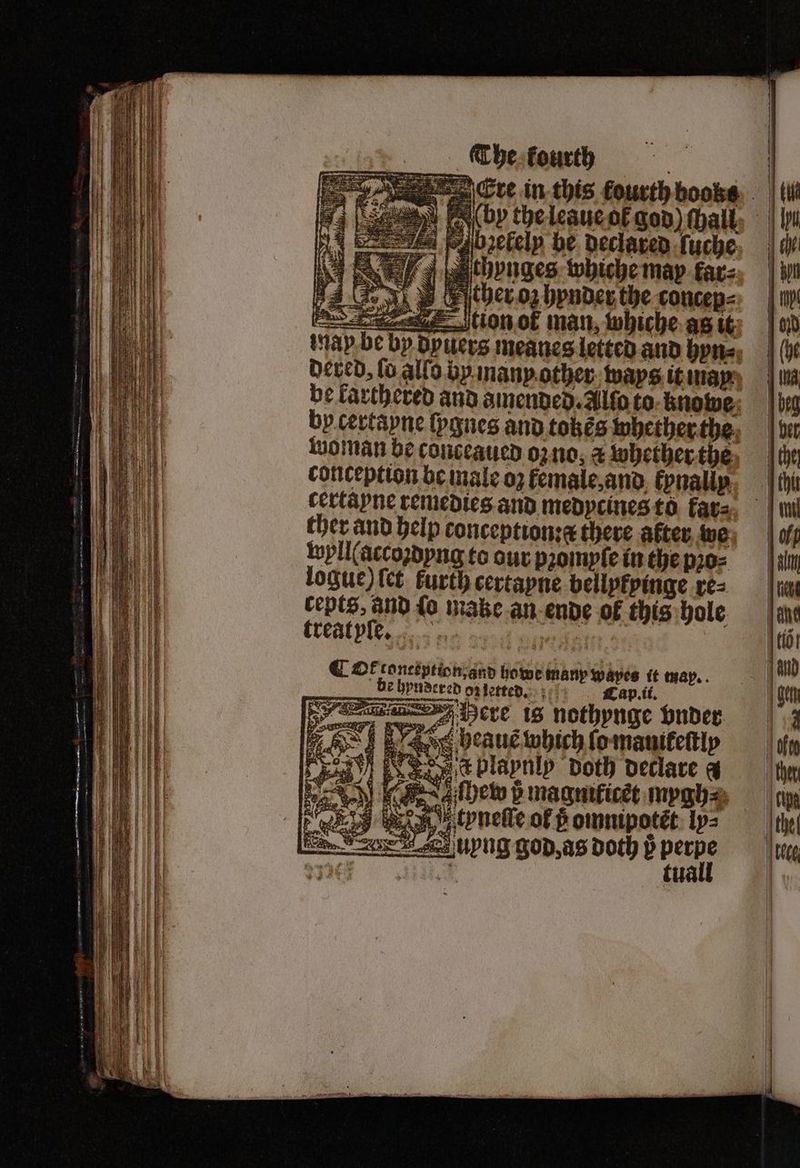 The fourth
HEre in this fourth booke
(by the leaue of god) shall
brefely be declared suche
thynges whiche may far-
ther or hynder the concep-
tion of man, whiche as it
may be by dyuers meanes letted and hyn-
dered, so also by many other ways it may
be farthered and amended. Also to knowe
by certayne sygnes and tokēs whether the
woman be conceaued or no, & whether the
conception be male or female, and fynally,
certayne remedies and medycines to far-
ther and help conception: & there after we
wyll (accordyng to our prompse in the pro-
logue) set furth certayne bellyfyinge re-
cepts, and so make an ende of this hole
treatyse.
¶ Of conception, and howe many wayes it may
be hyndered or letted. Cap.ii.
THere is nothynge vnder
heauē which so manifestly
& playnly doth declare &
shew þͤ magnificēt mygh-
tynesse of þͤ omnipotēt ly-
uyng god, as doth þͤ perpe
tuall